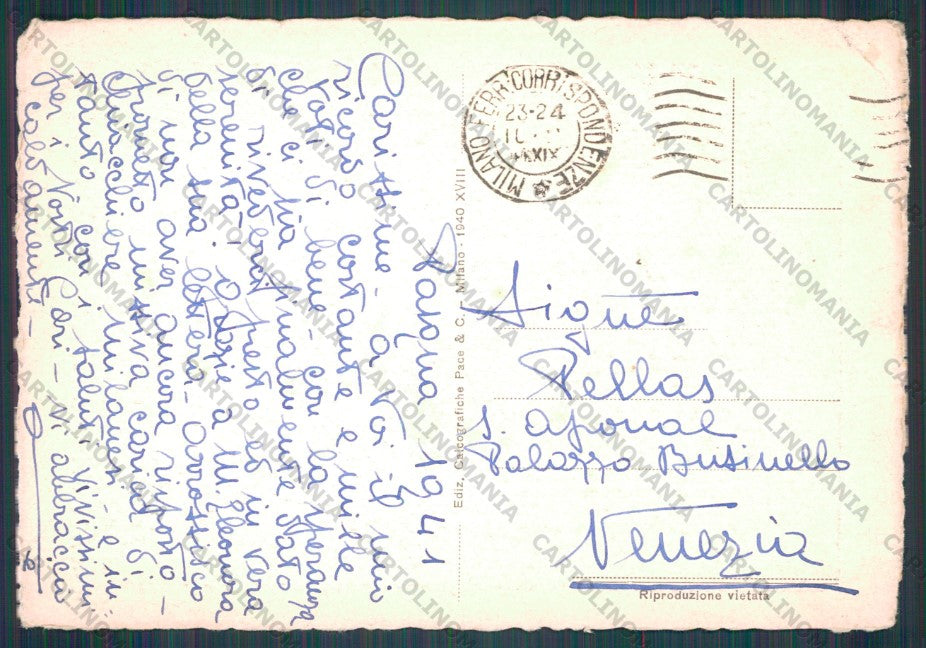 Pasqua 1941
Carissime - a Voi il mio
ricordo costante e mille
Voti di bene - con la speranza
che ci sia finalmente dato
di rivederci presto ed in vera
serenità. Grazie a M. Eleonora
della sua lettera - arrossisco
di non aver ancora risposto -
prometto missiva carica di
chiacchiere milanesi - e in
tanto con i saluti vivissimi
per i Vostri Cari - Vi abbraccio
caldamente -
MILANO FERR. CORRISPONDENZE
23-24
XIX
Ediz. Calcografiche Pace & C. - Milano - 1940 XVIII
Sig.ne
Pellas
S. Aponal
Palazzo Businello
Venezia
Riproduzione vietata
CARTOLINOMANIA